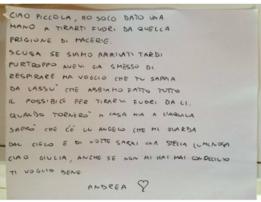 CIAO PICCOLA, HO SOLO DATO UNA
MANO A TIRARTI FUORI DA QUELLA
PRIGIONE DI MACERIE.
SCUSA SE SIAMO ARRIVATI TARDI
PURTROPPO AVEVI GIA SMESSO DI
RESPIRARE MA VOGLIO CHE TU SAPPIA
DA LASSU' CHE ABBIAMO FATTO TUTTO
IL POSSIBILE PER TIRARVI FUORI DA LI.
QUANDO TORNERO' A CASA MIA A L'AQUILA
SAPRO' CHE C'E' UN ANGELO CHE MI GUARDA
DAL CIELO E DI NOTTE SARAI UNA STELLA LUMINOSA
CIAO GIULIA, ANCHE SE NON MI HAI MAI CONOSCIUTO
TI VOGLIO BENE.
ANDREA